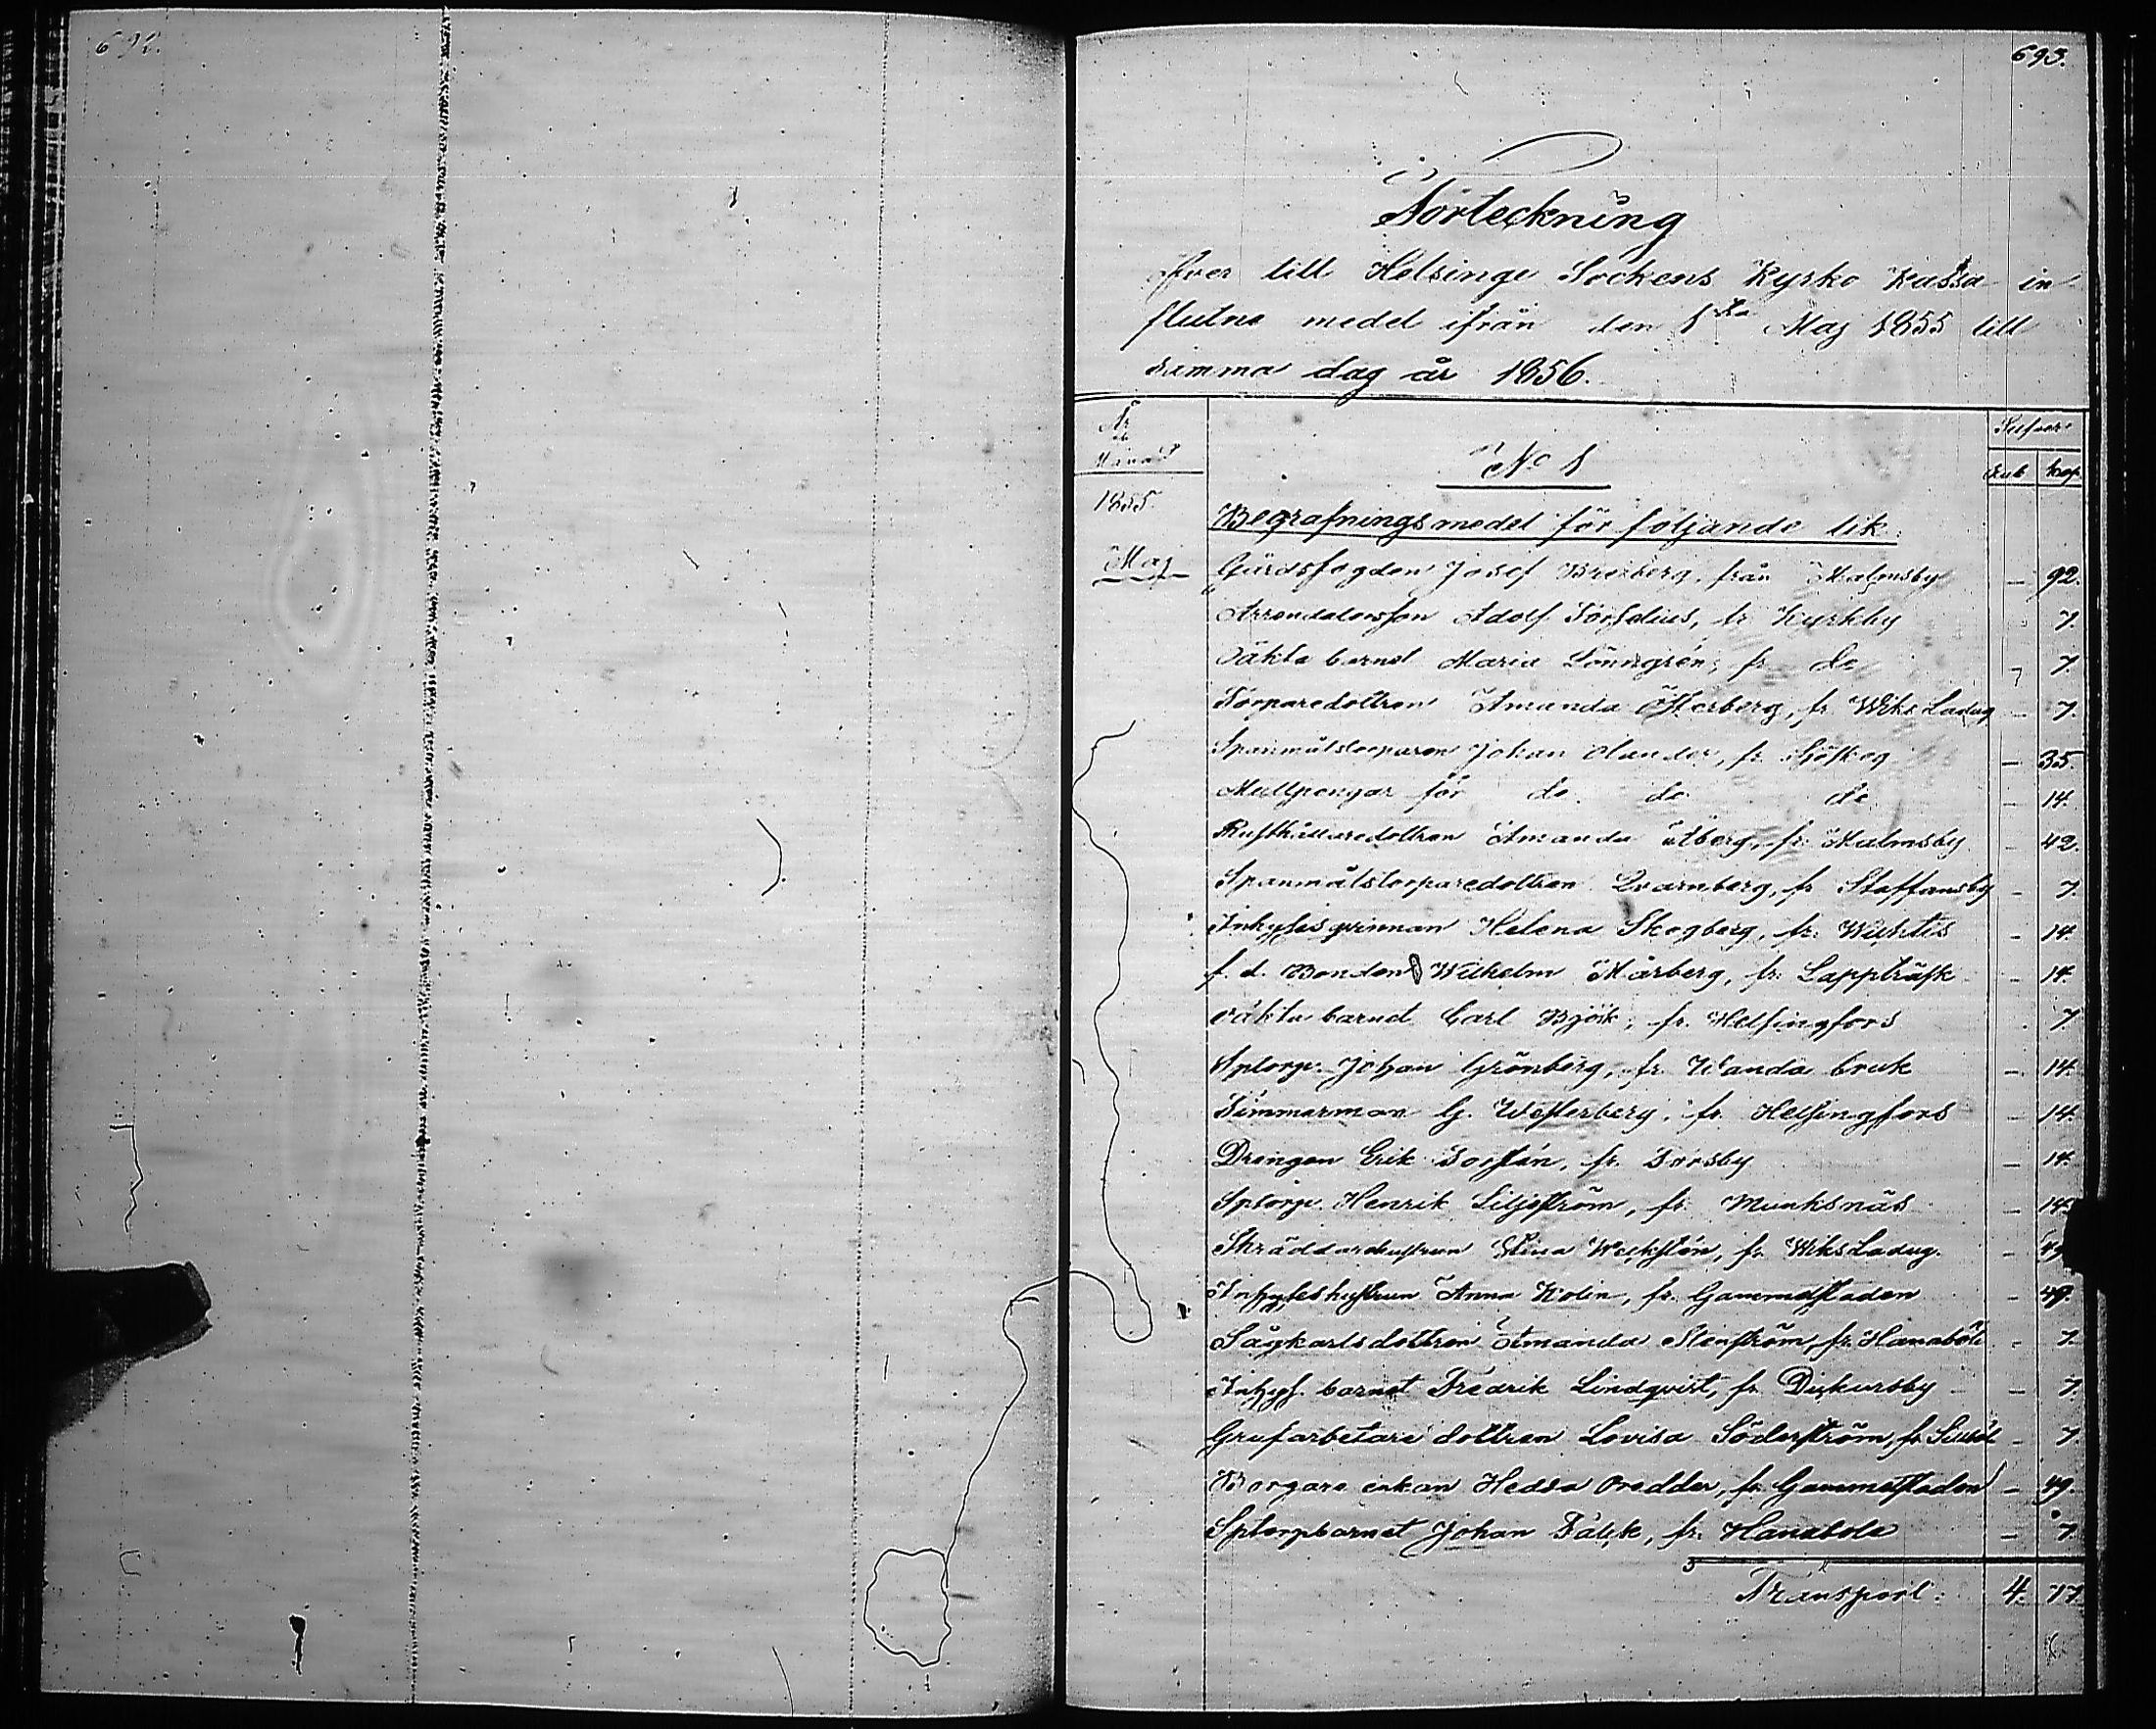 692.
693.
Förteckning
öfver till Helsinge Sockens Kyrko Kassa in-
flutne medel ifrån den 1sta Maj 1855 till
samma dag år 1856.
År
och
Månad
Silfver
Rub Kop
No 1
1855.
Begrafningsmedel för följande lik:
Maj Gårdsfogden Josef Breiberg, från Malmsby — 92.
Arrendatorsson Adolf Forselius, fr. Kyrkby - 7.
Oäkta barnet Maria Lönngrén, fr. do - 7.
Torparedottren Amanda Österberg, fr. Wiks Ladug — 7.
Spanmålstorparen Johan Olander, fr. Sjöskog — 35.
Mullpengar för do. do do - 14.
Rusthållaredottren Amanda Åberg, fr. Malmsby - 42.
Spanmålstorparedottren Qvarnberg, fr. Staffansby - 7.
Inhysesqvinnan Helena Skogberg, fr. Wichtis - 14.
f. d. Bonden Wilhelm Mårberg, fr. Lappträsk - 14.
oäkta barnet Carl Björk, fr. Helsingfors - 7
Sptorp. Johan Grönberg, fr. Wanda bruk — 14.
Timmerman G. Westerberg, fr. Helsingfors — 14.
Drengen Erik Torstén, fr. Torsby — 14.
Sptorp. Henrik Liljeström, fr. Munksnäs — 14.
Skräddarehustrun Stina Weckstén, fr. Wiks Ladug. -
Inhyseshustrun Anna Kolin, fr. Gammelstaden - 49.
Sågkarlsdottren Amanda Stenström, fr. Hanaböle - 7.
Inhys. barnet Fredrik Lindqvist, fr. Dickursby — 7.
Grufarbetare dottren Lovisa Söderström, fr. Sillböle - 7.
Borgare enkan Hedda Oredder, fr. Gammelstaden — 49.
Sptorpbarnet Johan Falck, fr. Hanabole — 7.
Transport: 4. 77